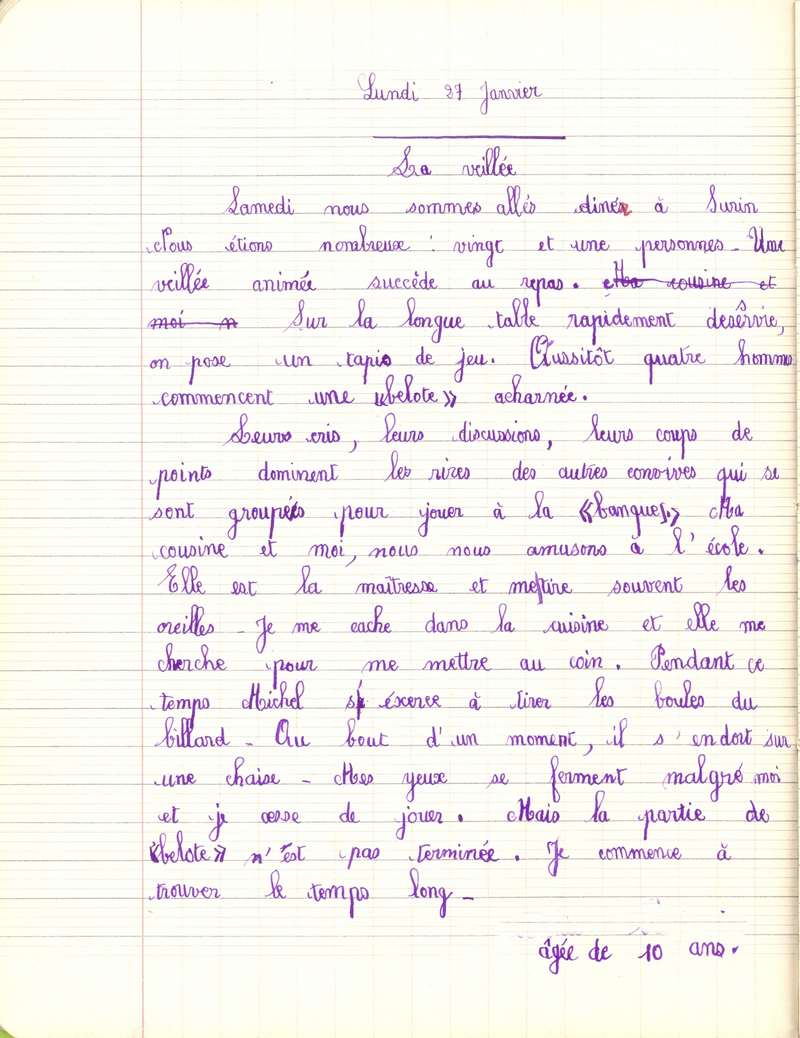 Lundi 27 Janvier
La veillée
Samedi nous sommes allés diner à Surin
Nous étions nombreux : vingt et une personnes - Une
veillée animée succède au repas. Ma cousine et
moi n Sur la longue table rapidement desservie,
on pose un tapis de jeu. Aussitôt quatre hommes
commencent une «belote» acharnée.
Leurs cris, leurs discussions, leurs coups de
points dominent les rires des autres convives qui se
sont groupés pour jouer à la «banque». Ma
cousine et moi, nous nous amusons à l'école.
Elle est la maîtresse et me tire souvent les
oreilles - Je me cache dans la cuisine et elle me
cherche pour me mettre au coin. Pendant ce
temps Michel s'éxerce à tirer les boules du
billard - Au bout d'un moment, il s'endort sur
une chaise - Mes yeux se ferment malgré moi
et je cesse de jouer. Mais la partie de
«belote» n'est pas terminée. Je commence à
trouver le temps long -
âgée de 10 ans.